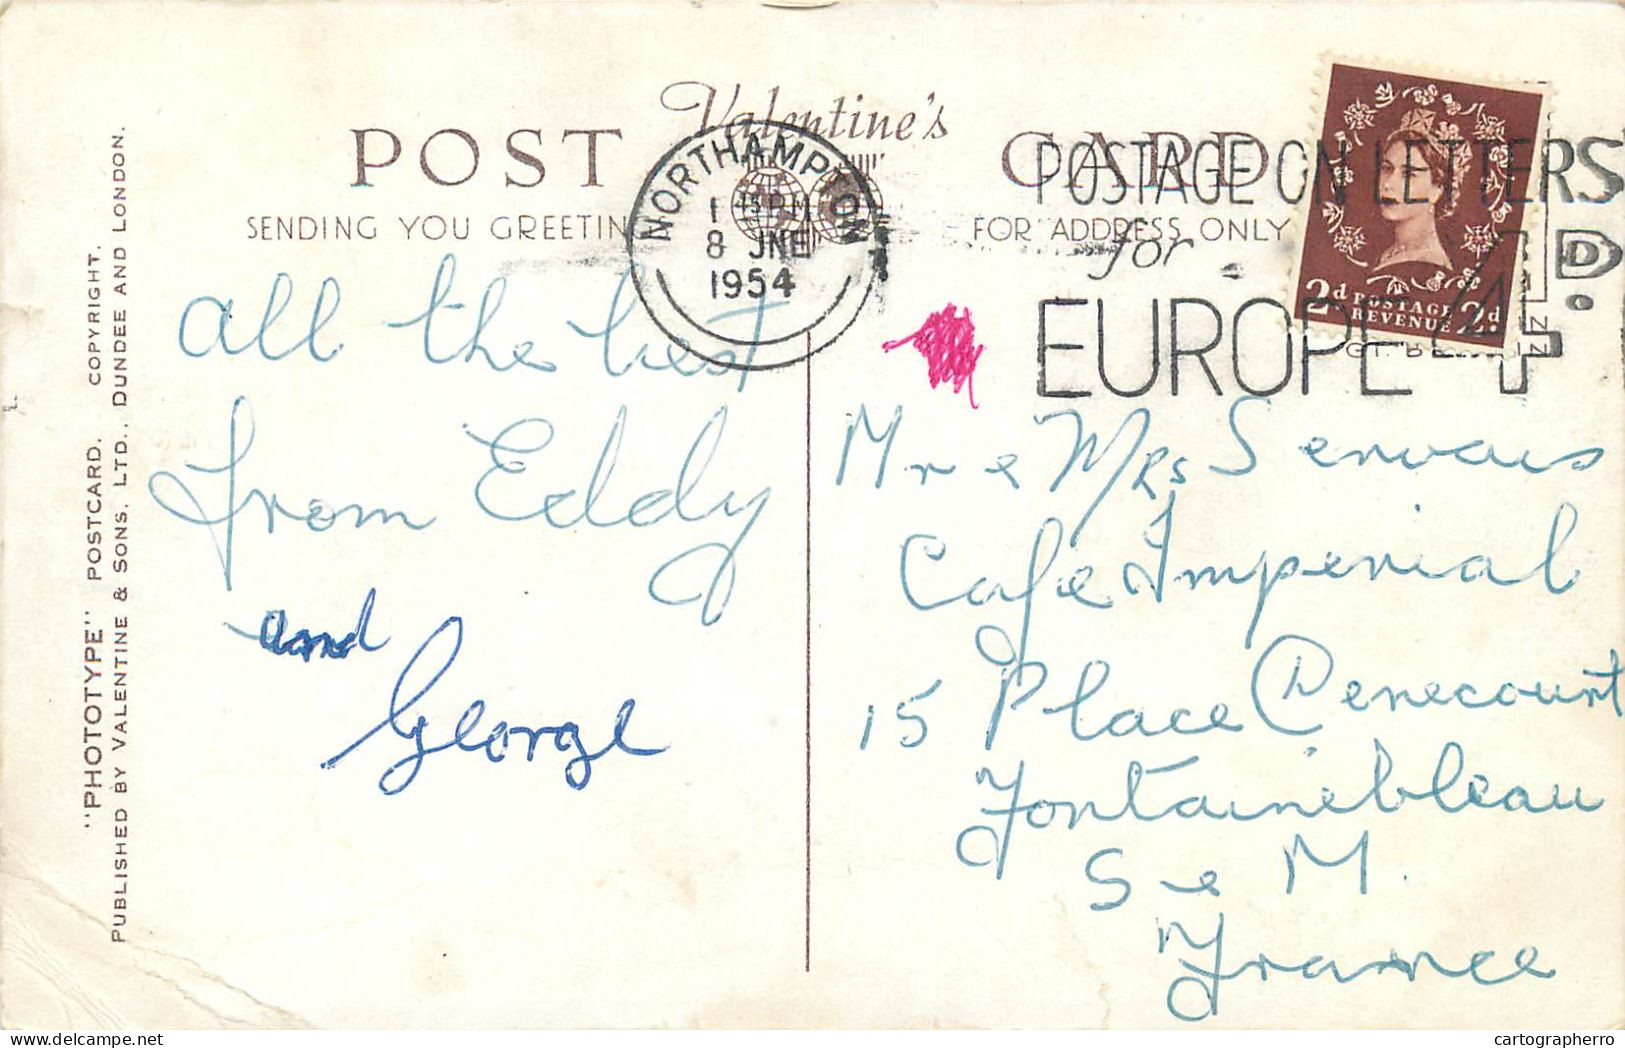 Valentine's
POST CARD
SENDING YOU GREETIN
FOR ADDRESS ONLY
NORTHAMPTON
8 JNE
1954
POSTAGE ON LETTERS
for
EUROPE 4D.
2d POSTAGE REVENUE 2d
"PHOTOTYPE" POSTCARD. COPYRIGHT.
PUBLISHED BY VALENTINE & SONS, LTD., DUNDEE AND LONDON.
all the best
from Eddy
and
George
Mr e Mrs Servais
Cafe Imperial
15 Place Denecourt
Fontainebleau
S e M.
France
cartographerro